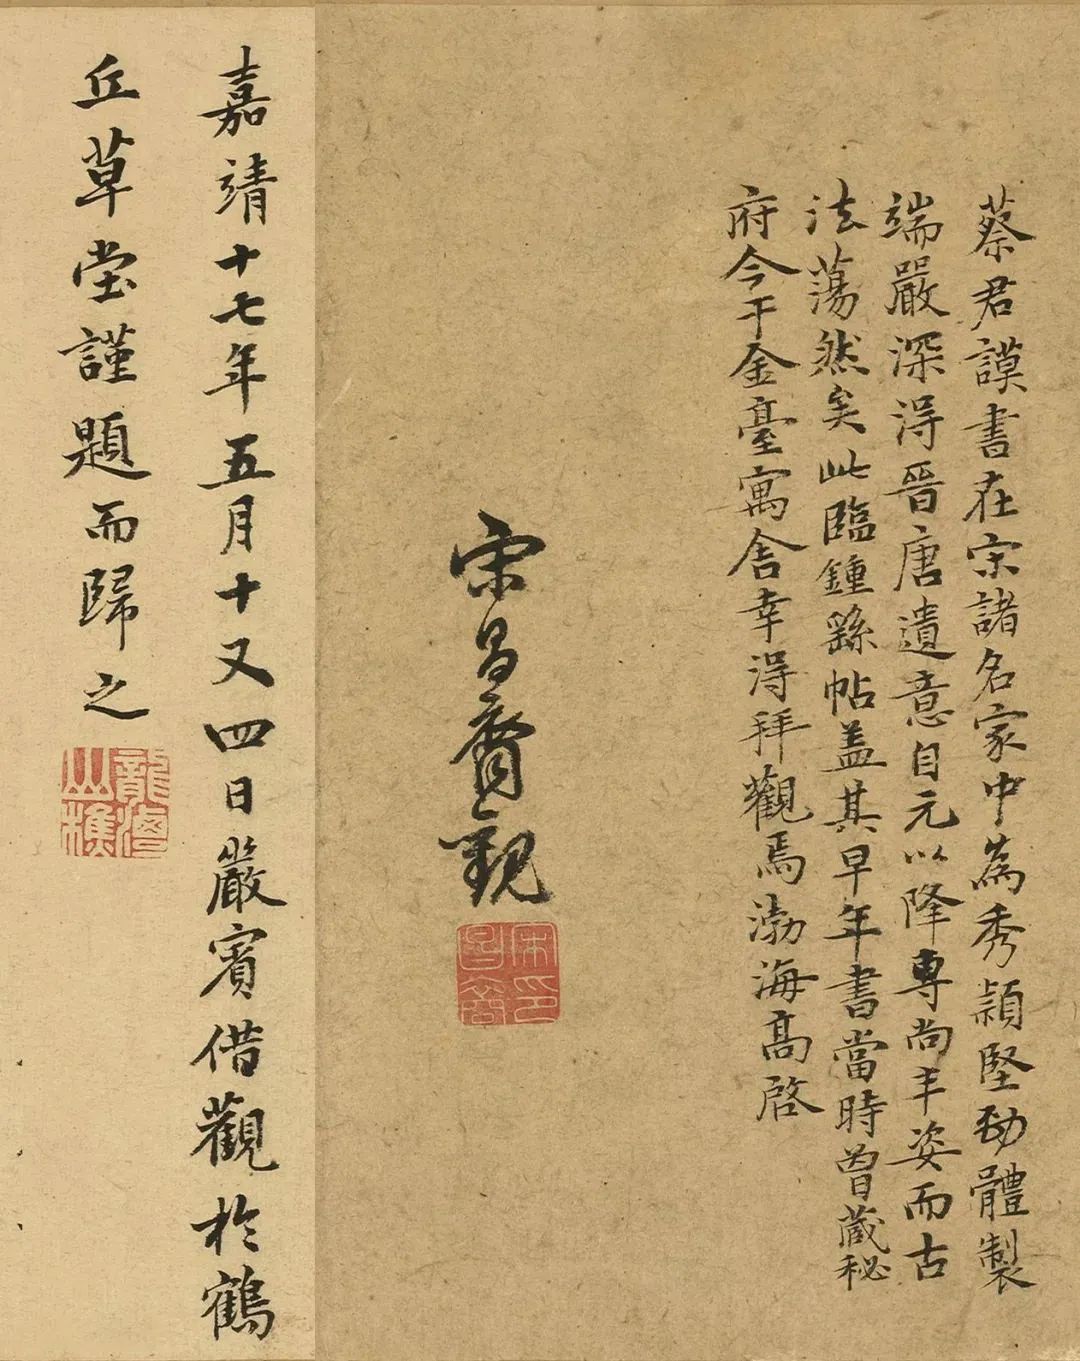 蔡君謨書在宋諸名家中為秀穎堅勁體製
端嚴深得晉唐遺意自元以降專尚丰姿而古
法蕩然矣此臨鍾繇帖盖其早年書當時曾藏秘
府今于金臺寓舍幸得拜觀焉渤海高啓
宋昌裔觀
宋昌裔印
嘉靖十七年五月十又四日嚴賓借觀於鶴
丘草堂謹題而歸之